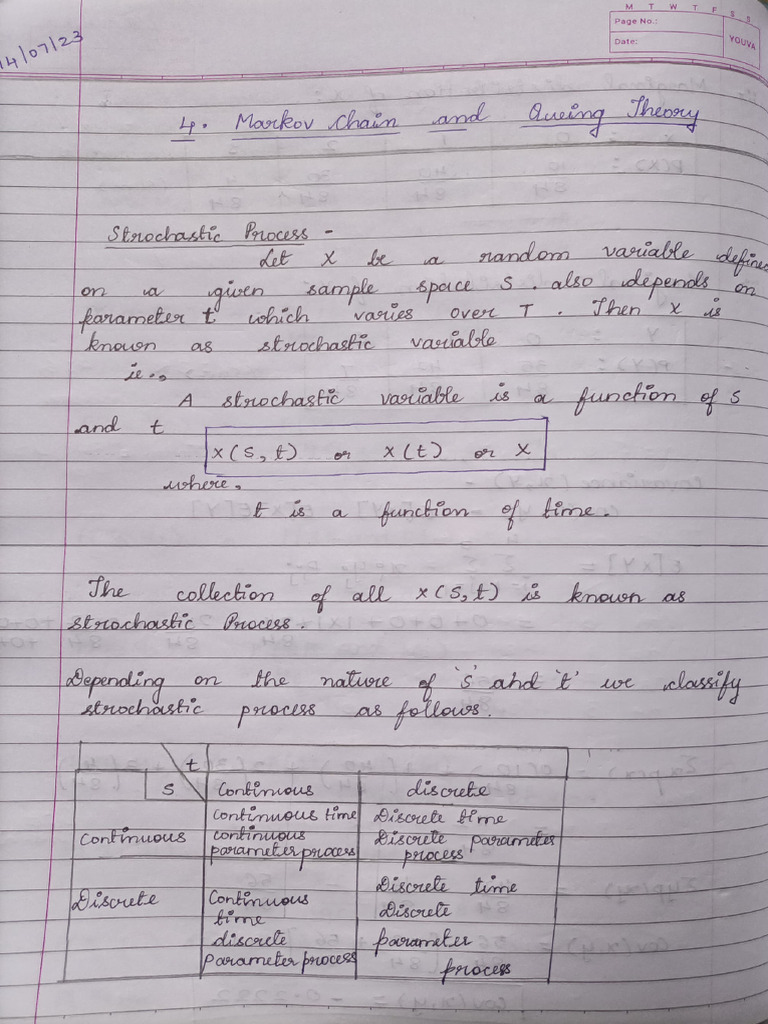 M T W T F S S
Page No.:
Date:
YOUVA
14/07/23
4. Markov Chain and Queing Theory
Strochastic Process -
Let X be a random variable defines
on a given sample space S. also depends on
parameter t which varies over T. Then X is
known as strochastic variable
ie.,
A strochastic variable is a function of S
and t
X(S, t) or X(t) or X
where,
t is a function of time.
The collection of all X(S,t) is known as
strochastic Process.
Depending on the nature of 's' and 't' we classify
strochastic process as follows.
t
S Continuous discrete
Continuous time Discrete time
Continuous continuous Discrete parameter
parameter process process
Discrete time
Discrete Continuous Discrete
time
discrete parameter
parameter process process